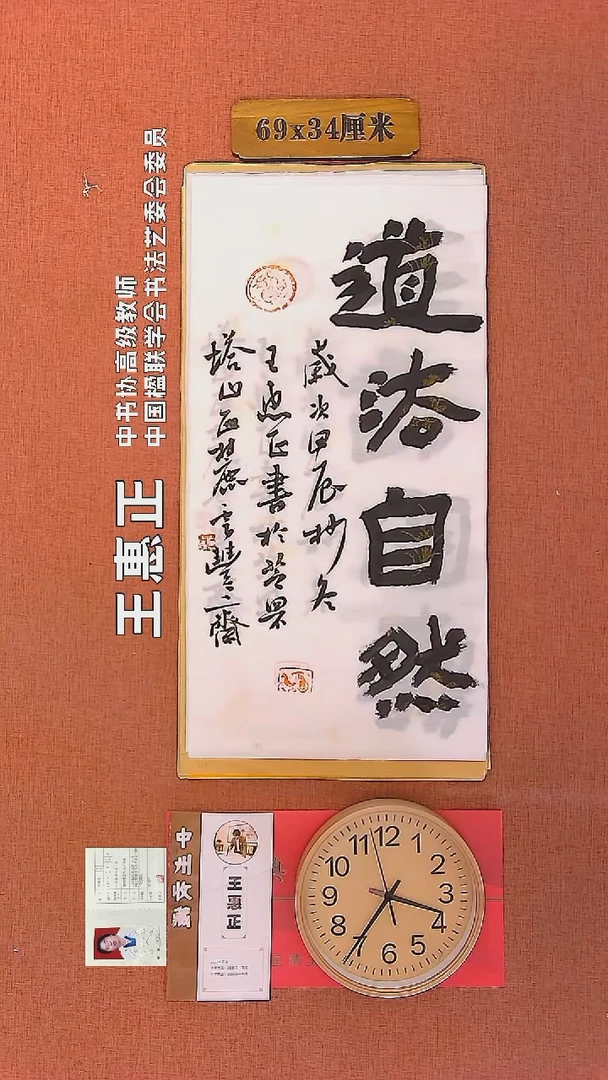 69x34厘米
道法自然
歲次甲辰杪冬
王惠正書於
塔山西麓雲豐
王惠正
中书协高级教师
中国楹联学会书法艺委会委员
中州收藏
王惠正
12
1
2
3
4
5
6
7
8
9
10
11